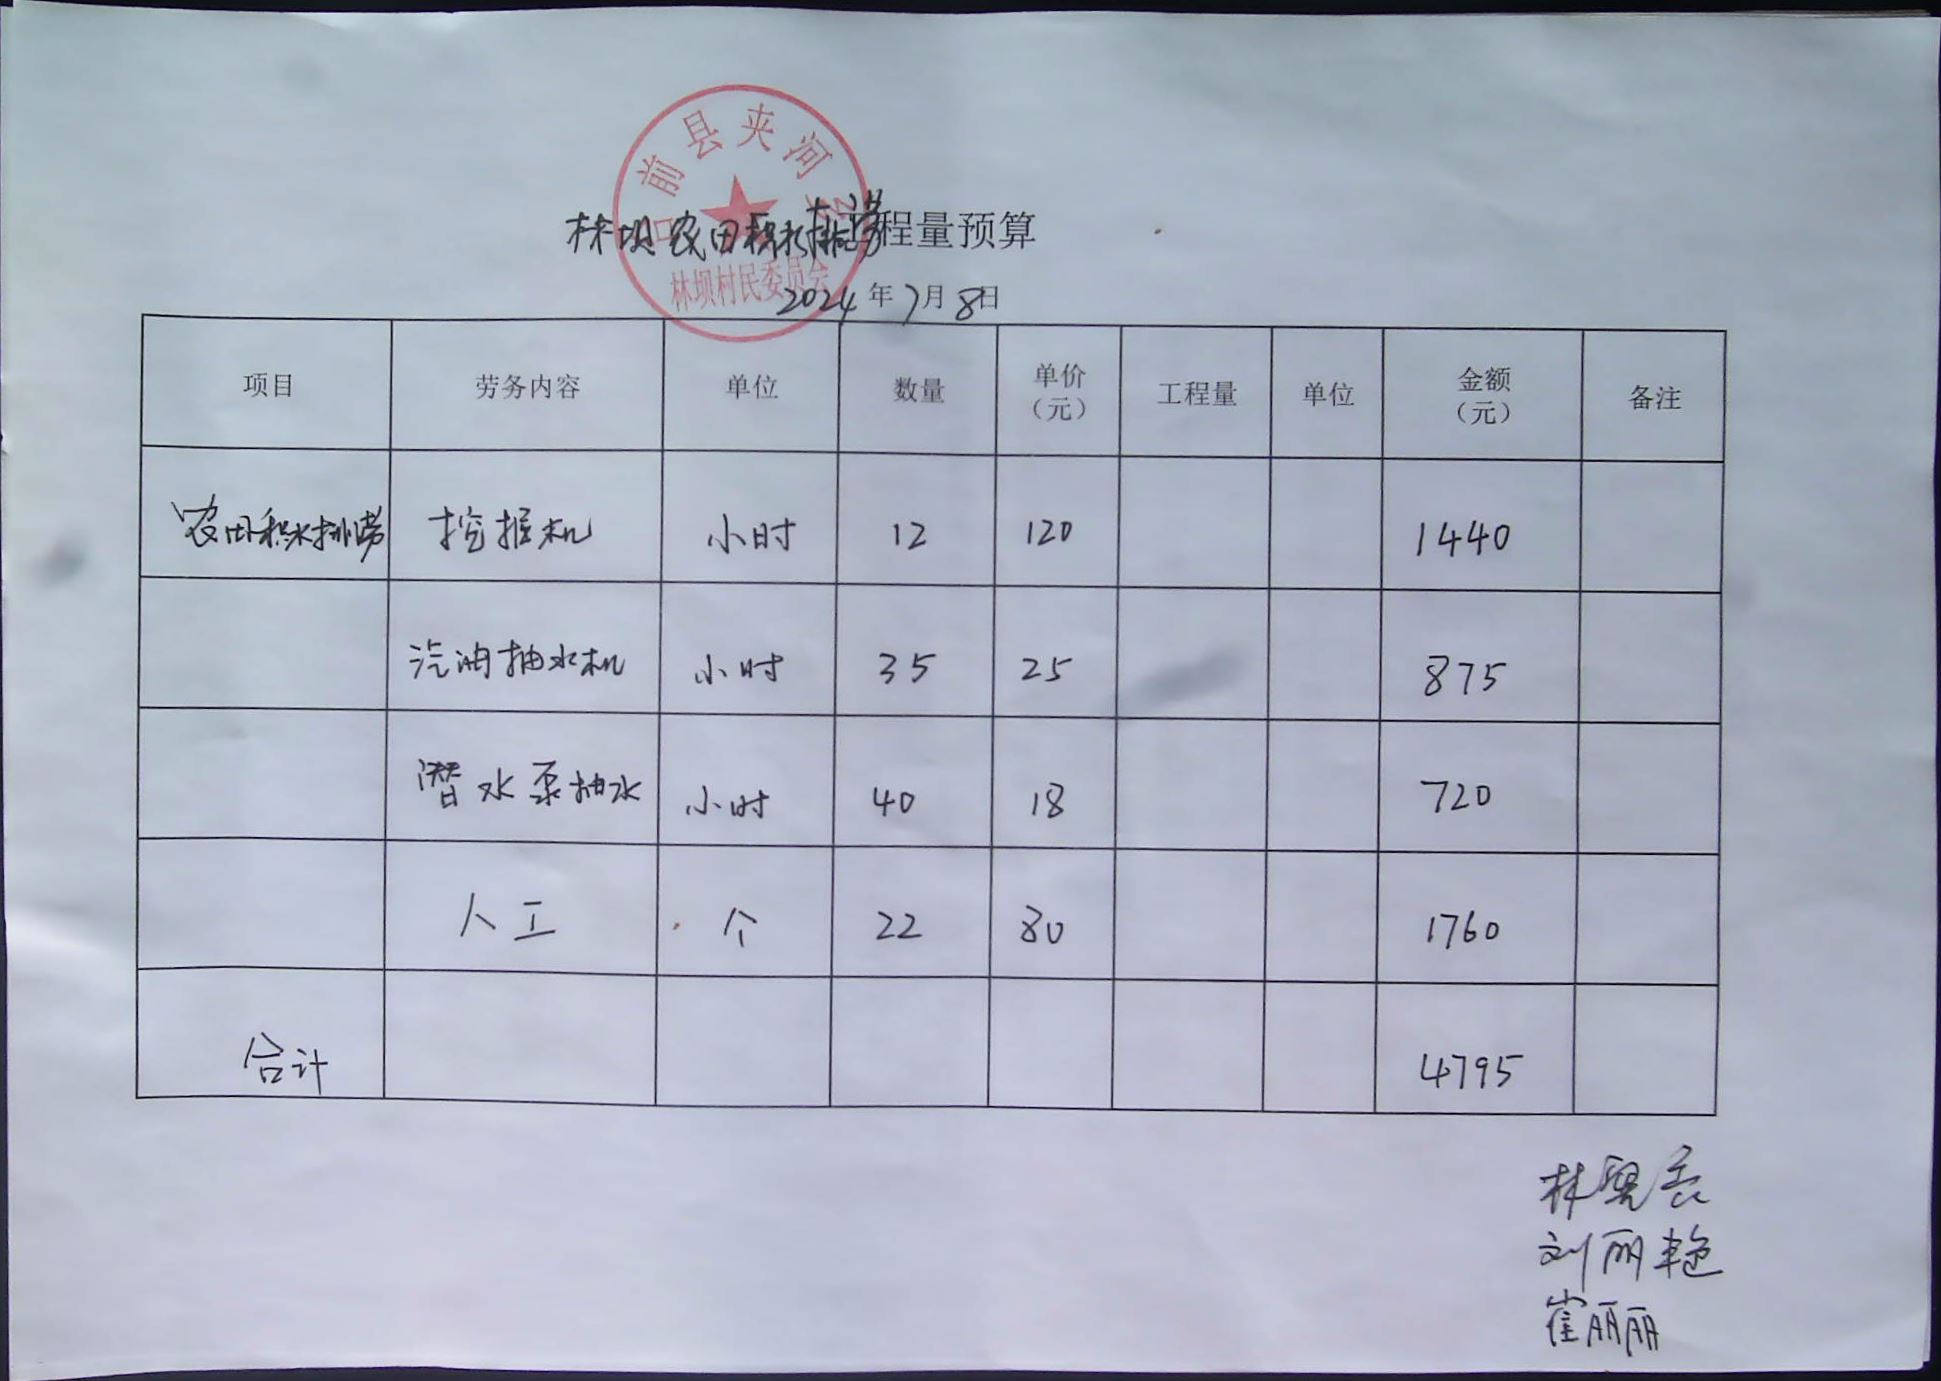 台前县夹河乡
林坝村民委员会
林坝农田积水排涝工程量预算
2024年7月8日
项目 劳务内容 单位 数量 单价（元） 工程量 单位 金额（元） 备注
农田积水排涝 挖掘机 小时 12 120 1440
汽油抽水机 小时 35 25 875
潜水泵抽水 小时 40 18 720
人工 个 22 80 1760
合计 4795
林
刘丽艳
崔丽丽